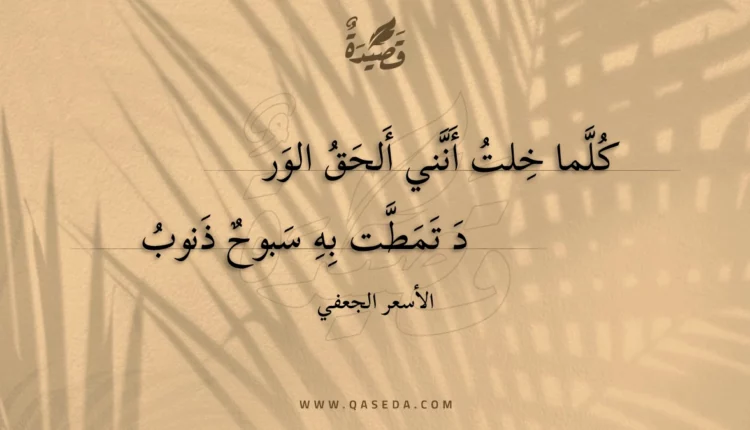 قَصِيْدَةٌ
كُلَّما خِلتُ أَنَّني أَلحَقُ الوَر
دَ تَمَطَّت بِهِ سَبوحٌ ذَنوبُ
الأسعر الجعفي
WWW.QASEDA.COM